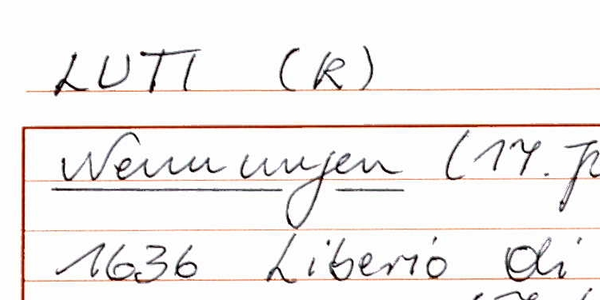 LUTI (R)
Nennungen (17. J
1636 Liberio di